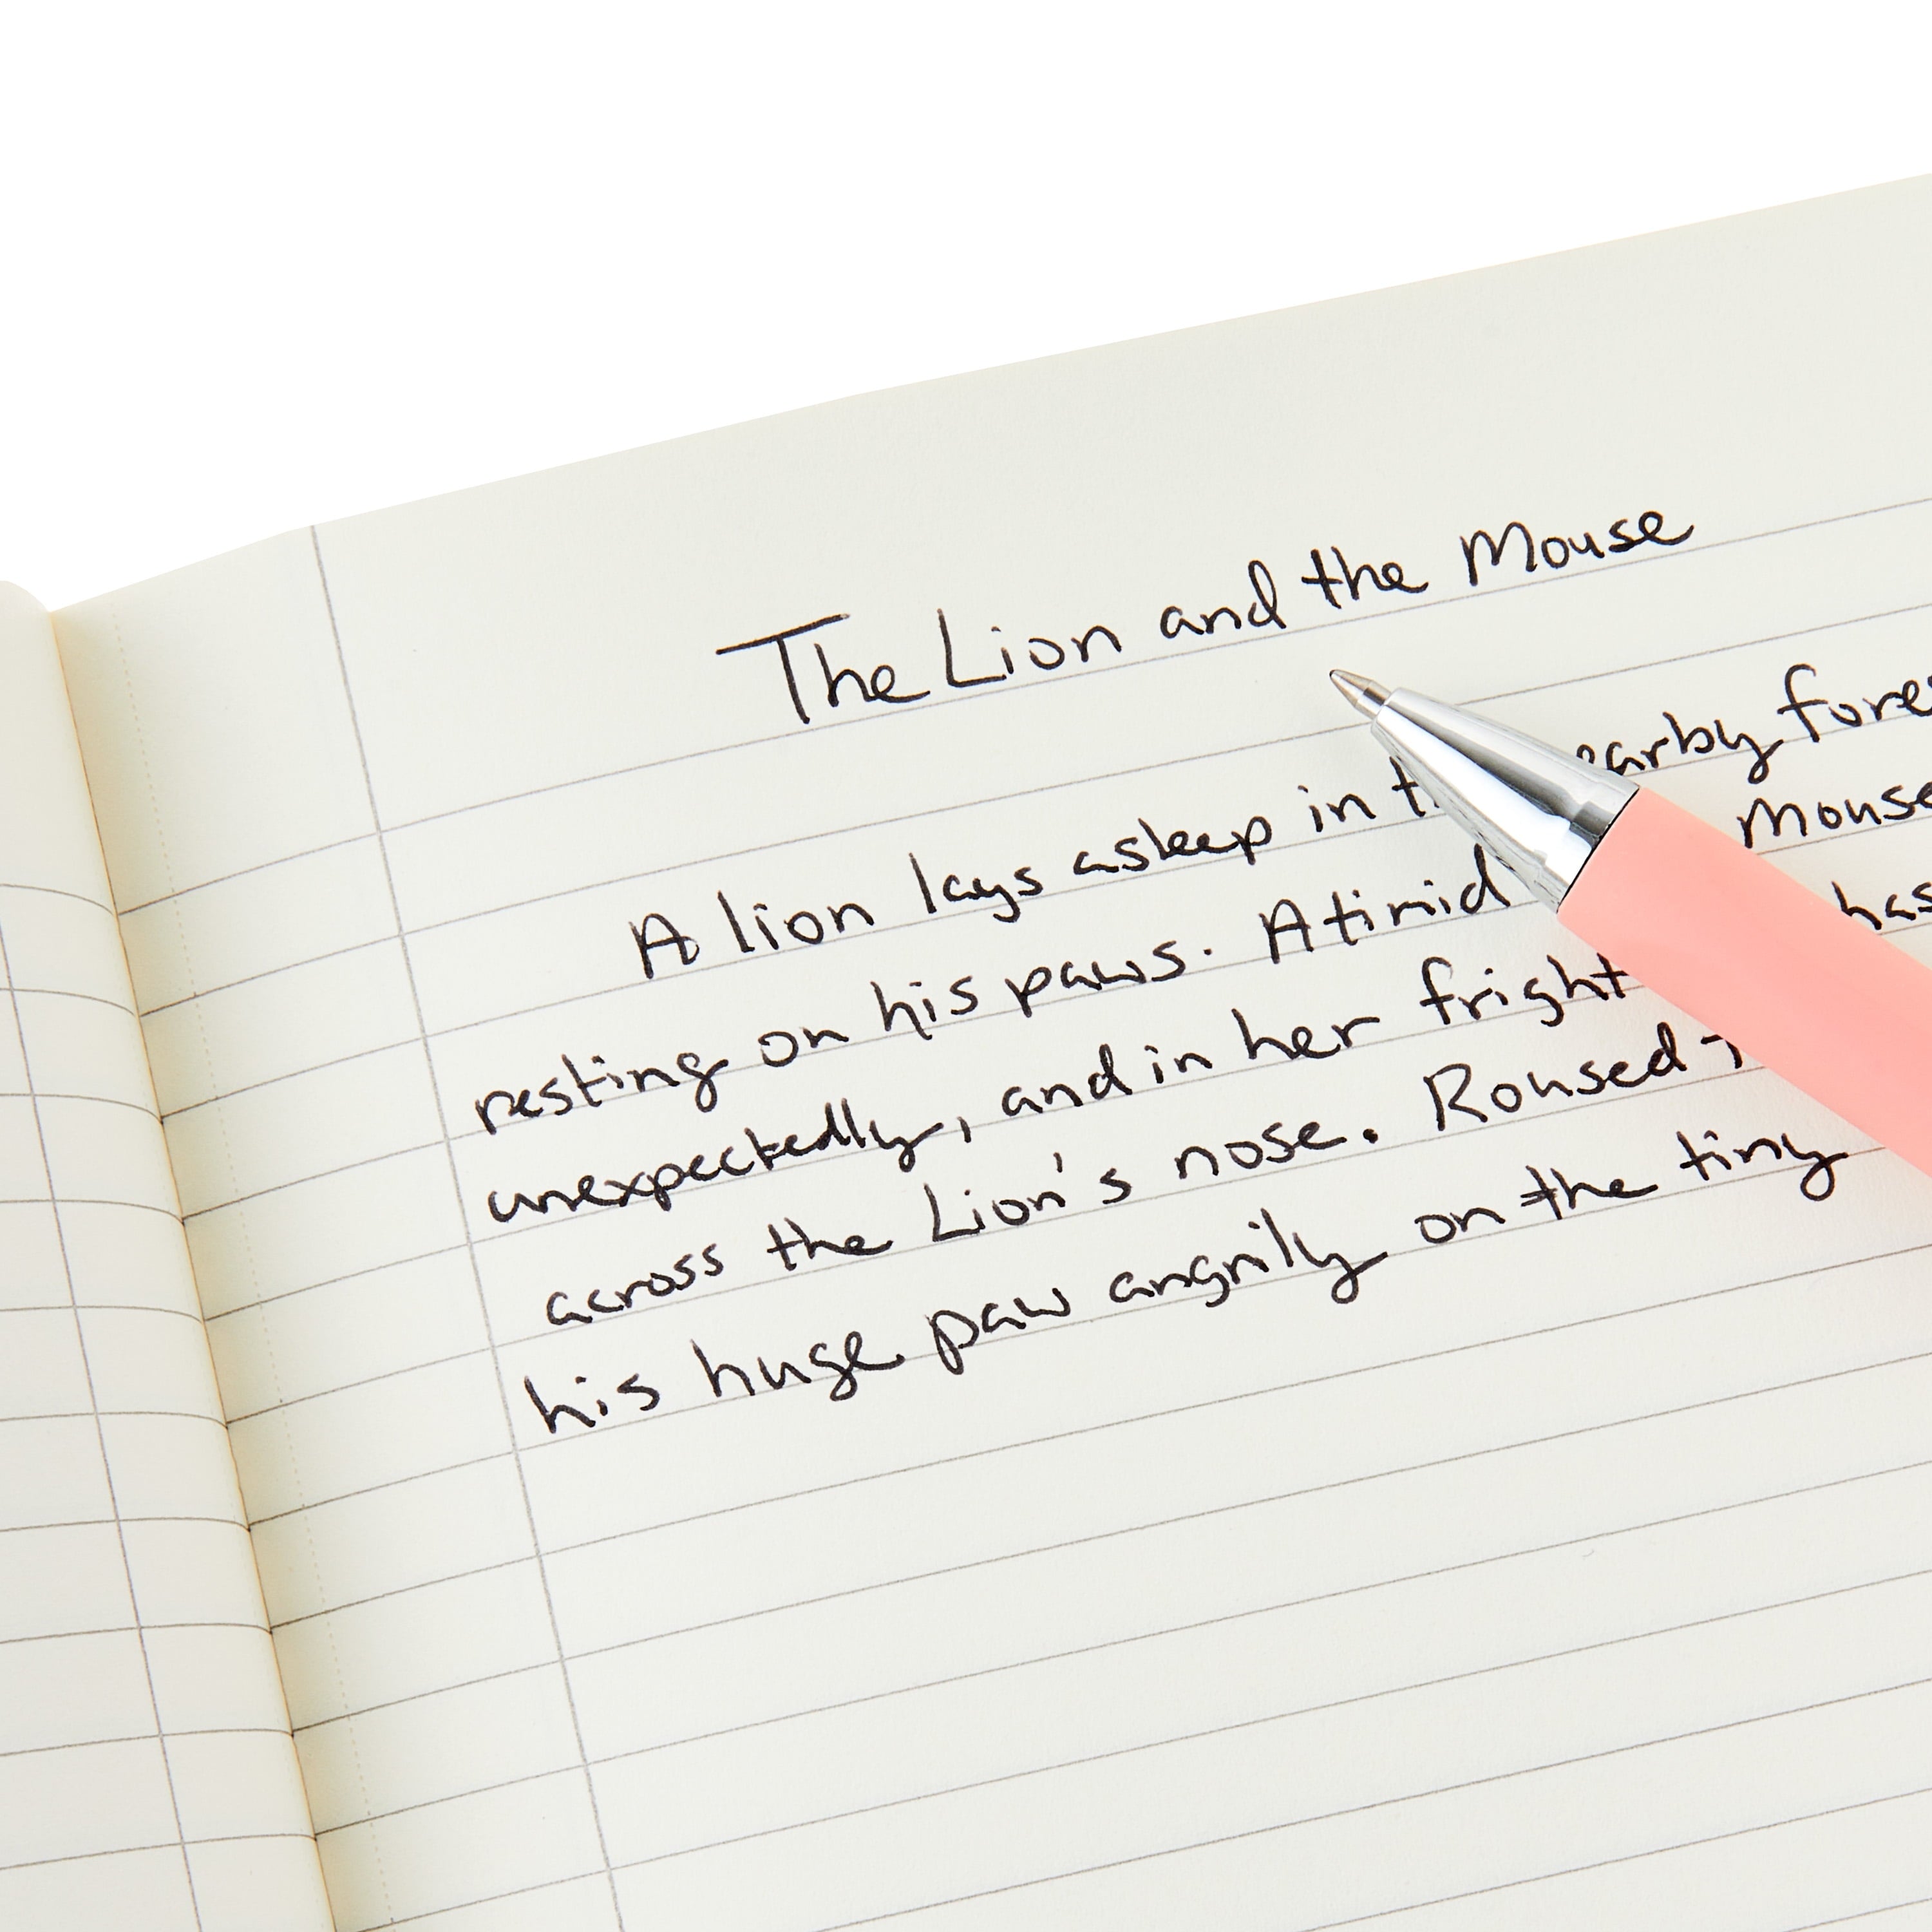 The Lion and the Mouse
A lion lays asleep in
resting on his paws. A timid Mouse
unexpectedly, and in her fright has
across the Lion's nose. Roused
his huge paw angrily on the tiny